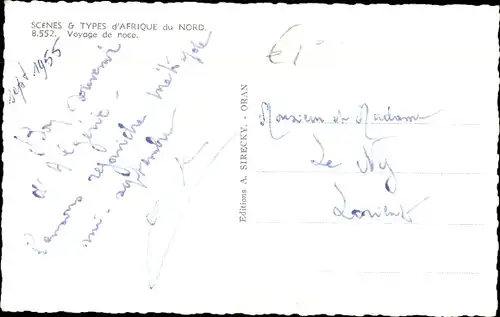 SCENES & TYPES d'AFRIQUE du NORD.
8.552. Voyage de noce.
Sept 1955
Bon Souvenir
d'Algérie.
Pensons rejoindre métropole
mi-septembre
Editions A. SIRECKY. - ORAN
€1
Monsieur & Madame
Le Ny
Lorient